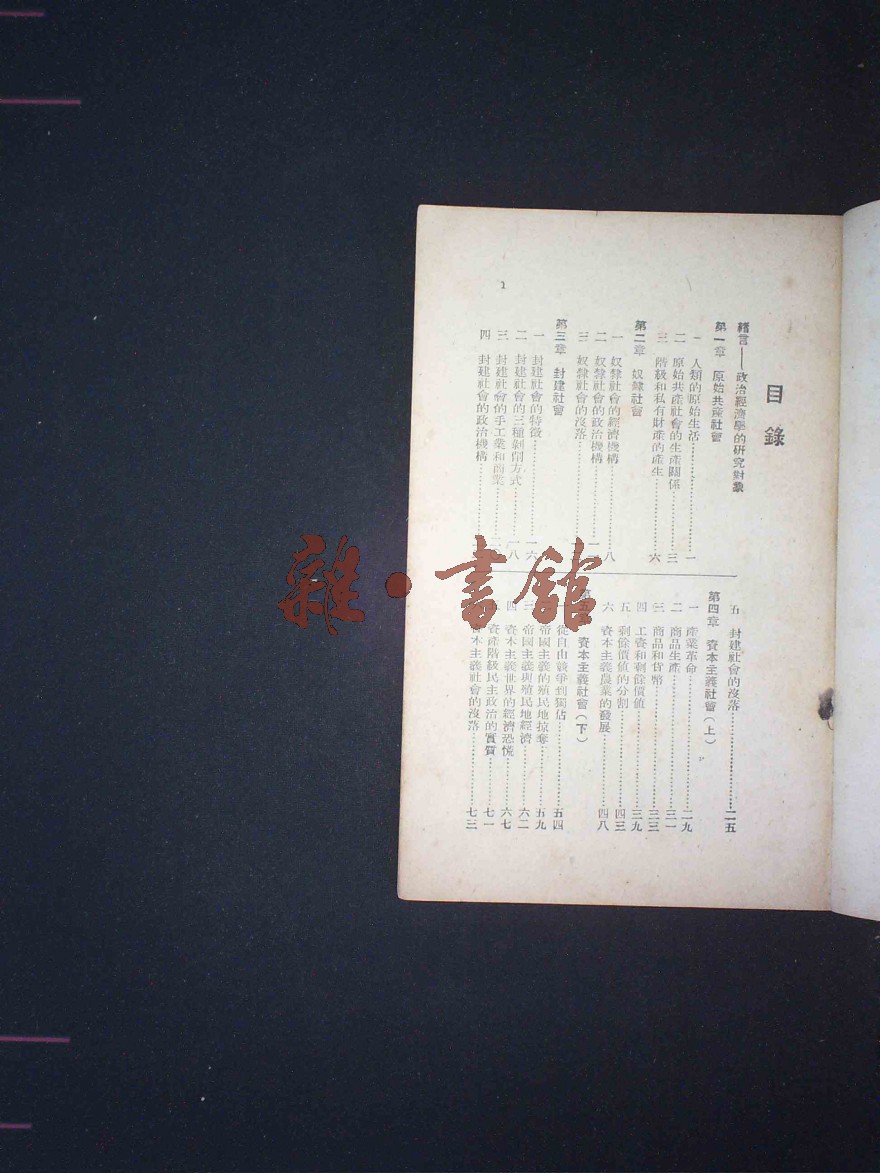 目錄
緒言——政治經濟學的研究對象
第一章 原始共產社會
一 人類的原始生活……一
二 原始共產社會的生產關係……三
三 階級和私有財產的產生……六
第二章 奴隸社會
一 奴隸社會的經濟機構……八
二 奴隸社會的政治機構……
三 奴隸社會的沒落……
第三章 封建社會
一 封建社會的特徵……一六
二 封建社會的三種剝削方式……一八
三 封建社會的手工業和商業……
四 封建社會的政治機構……
五 封建社會的沒落……二五
第四章 資本主義社會(上)
一 產業革命……二九
二 商品生產……三一
三 商品和貨幣……三三
四 工資和剩餘價值……三九
五 剩餘價值的分割……四三
六 資本主義農業的發展……四八
第五章 資本主義社會(下)
從自由競爭到獨佔……五四
帝國主義的殖民地掠奪……五九
三 帝國主義與殖民地經濟……六二
四 資本主義世界的經濟恐慌……六七
資產階級民主政治的實質……七一
資本主義社會的沒落……七三
1
雜·書館